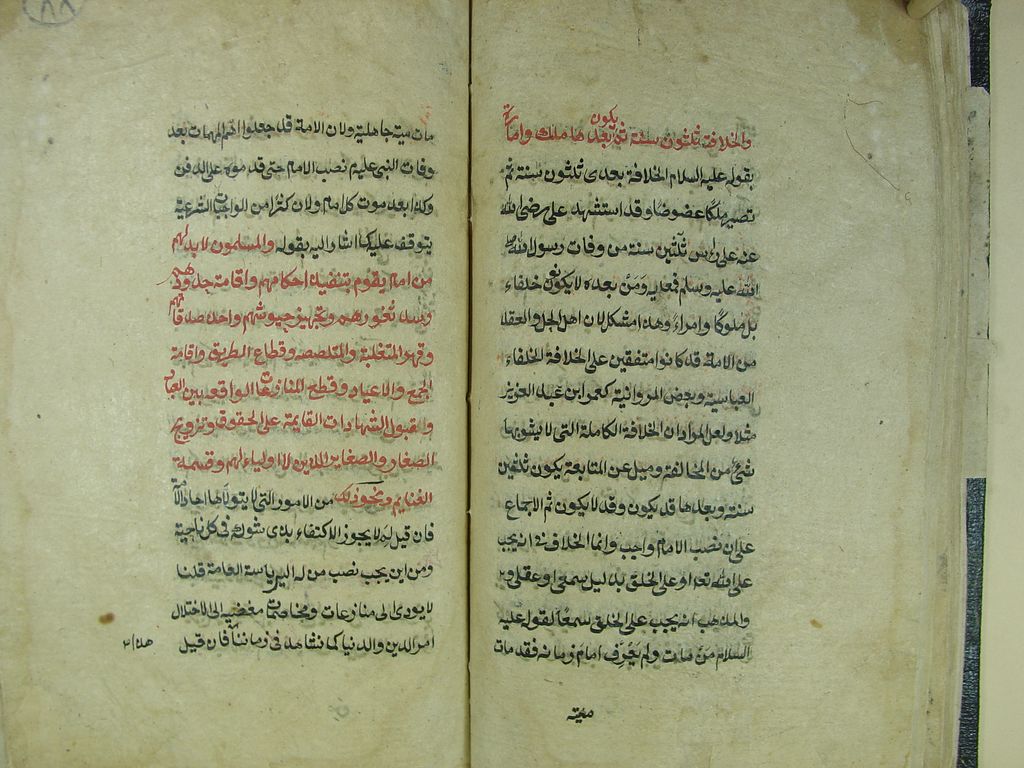 والخلافة ثلثون سنة ثم يكون بعدها ملك وامارة
بقوله عليه السلام الخلافة بعدى ثلثون سنة ثم
تصير ملكا عضوضا وقد استشهد على رضى الله
عنه على راس ثلثين سنة من وفات رسول الله
الله عليه وسلم فمعاوية ومن بعده لا يكونون خلفاء
بل ملوكا وامراء وهذا مشكل لان اهل الحل والعقد
من الامة قد كانوا متفقين على الخلافة الخلفاء
العباسية وبعض المروانية كعمر ابن عبد العزيز
مثلا ولعل المراد ان الخلافة الكاملة التى لا يشوبها
شئ من المخالفة وميل عن المتابعة يكون ثلثين
سنة وبعدها قد يكون وقد لا يكون ثم الاجماع
على ان نصب الامام واجب وانما الخلاف فى انه يجب
على الله تعا او على الخلق بدليل سمعى او عقلى و
والمذهب انه يجب على الخلق سمعا لقوله عليه
السلام من مات ولم يعرف امام زمانه فقد مات
ميتة
مات ميتة جاهلية ولان الامة قد جعلوا اهم المهمات بعد
وفات النبى عليه م نصب الامام حتى قدموه على الدفن
وكذا بعد موت كل امام ولان كثرا من الواجبات الشرعية
يتوقف عليه كما اشار اليه بقوله والمسلمون لا بد لهم
من امام يقوم بتنفيذ احكامهم واقامة حدودهم
وسد ثغورهم وتجهيز جيوشهم واخذ صدقاتهم
وقهر المتغلبة والمتلصصه وقطاع الطريق واقامة
الجمع والاعياد وقطع المنازعات الواقعه بين العباد
والقبول الشهادات القايمة على الحقوق وتزويج
الصغار والصغاير الذين لا اولياء لهم وقسمة
الغنايم ونحو ذلك من الامور التى لا يتولاها احاد الامة
فان قيل لم لا يجوز الاكتفاء بذى شوكة فى كل ناحية
ومن اين يجب نصب من له الرياسة العامة قلنا
لا يودى الى منازعات ومخاصمات مفضيه الى الاختلال
امر الدين والدنيا كما نشاهد فى زماننا فان قيل